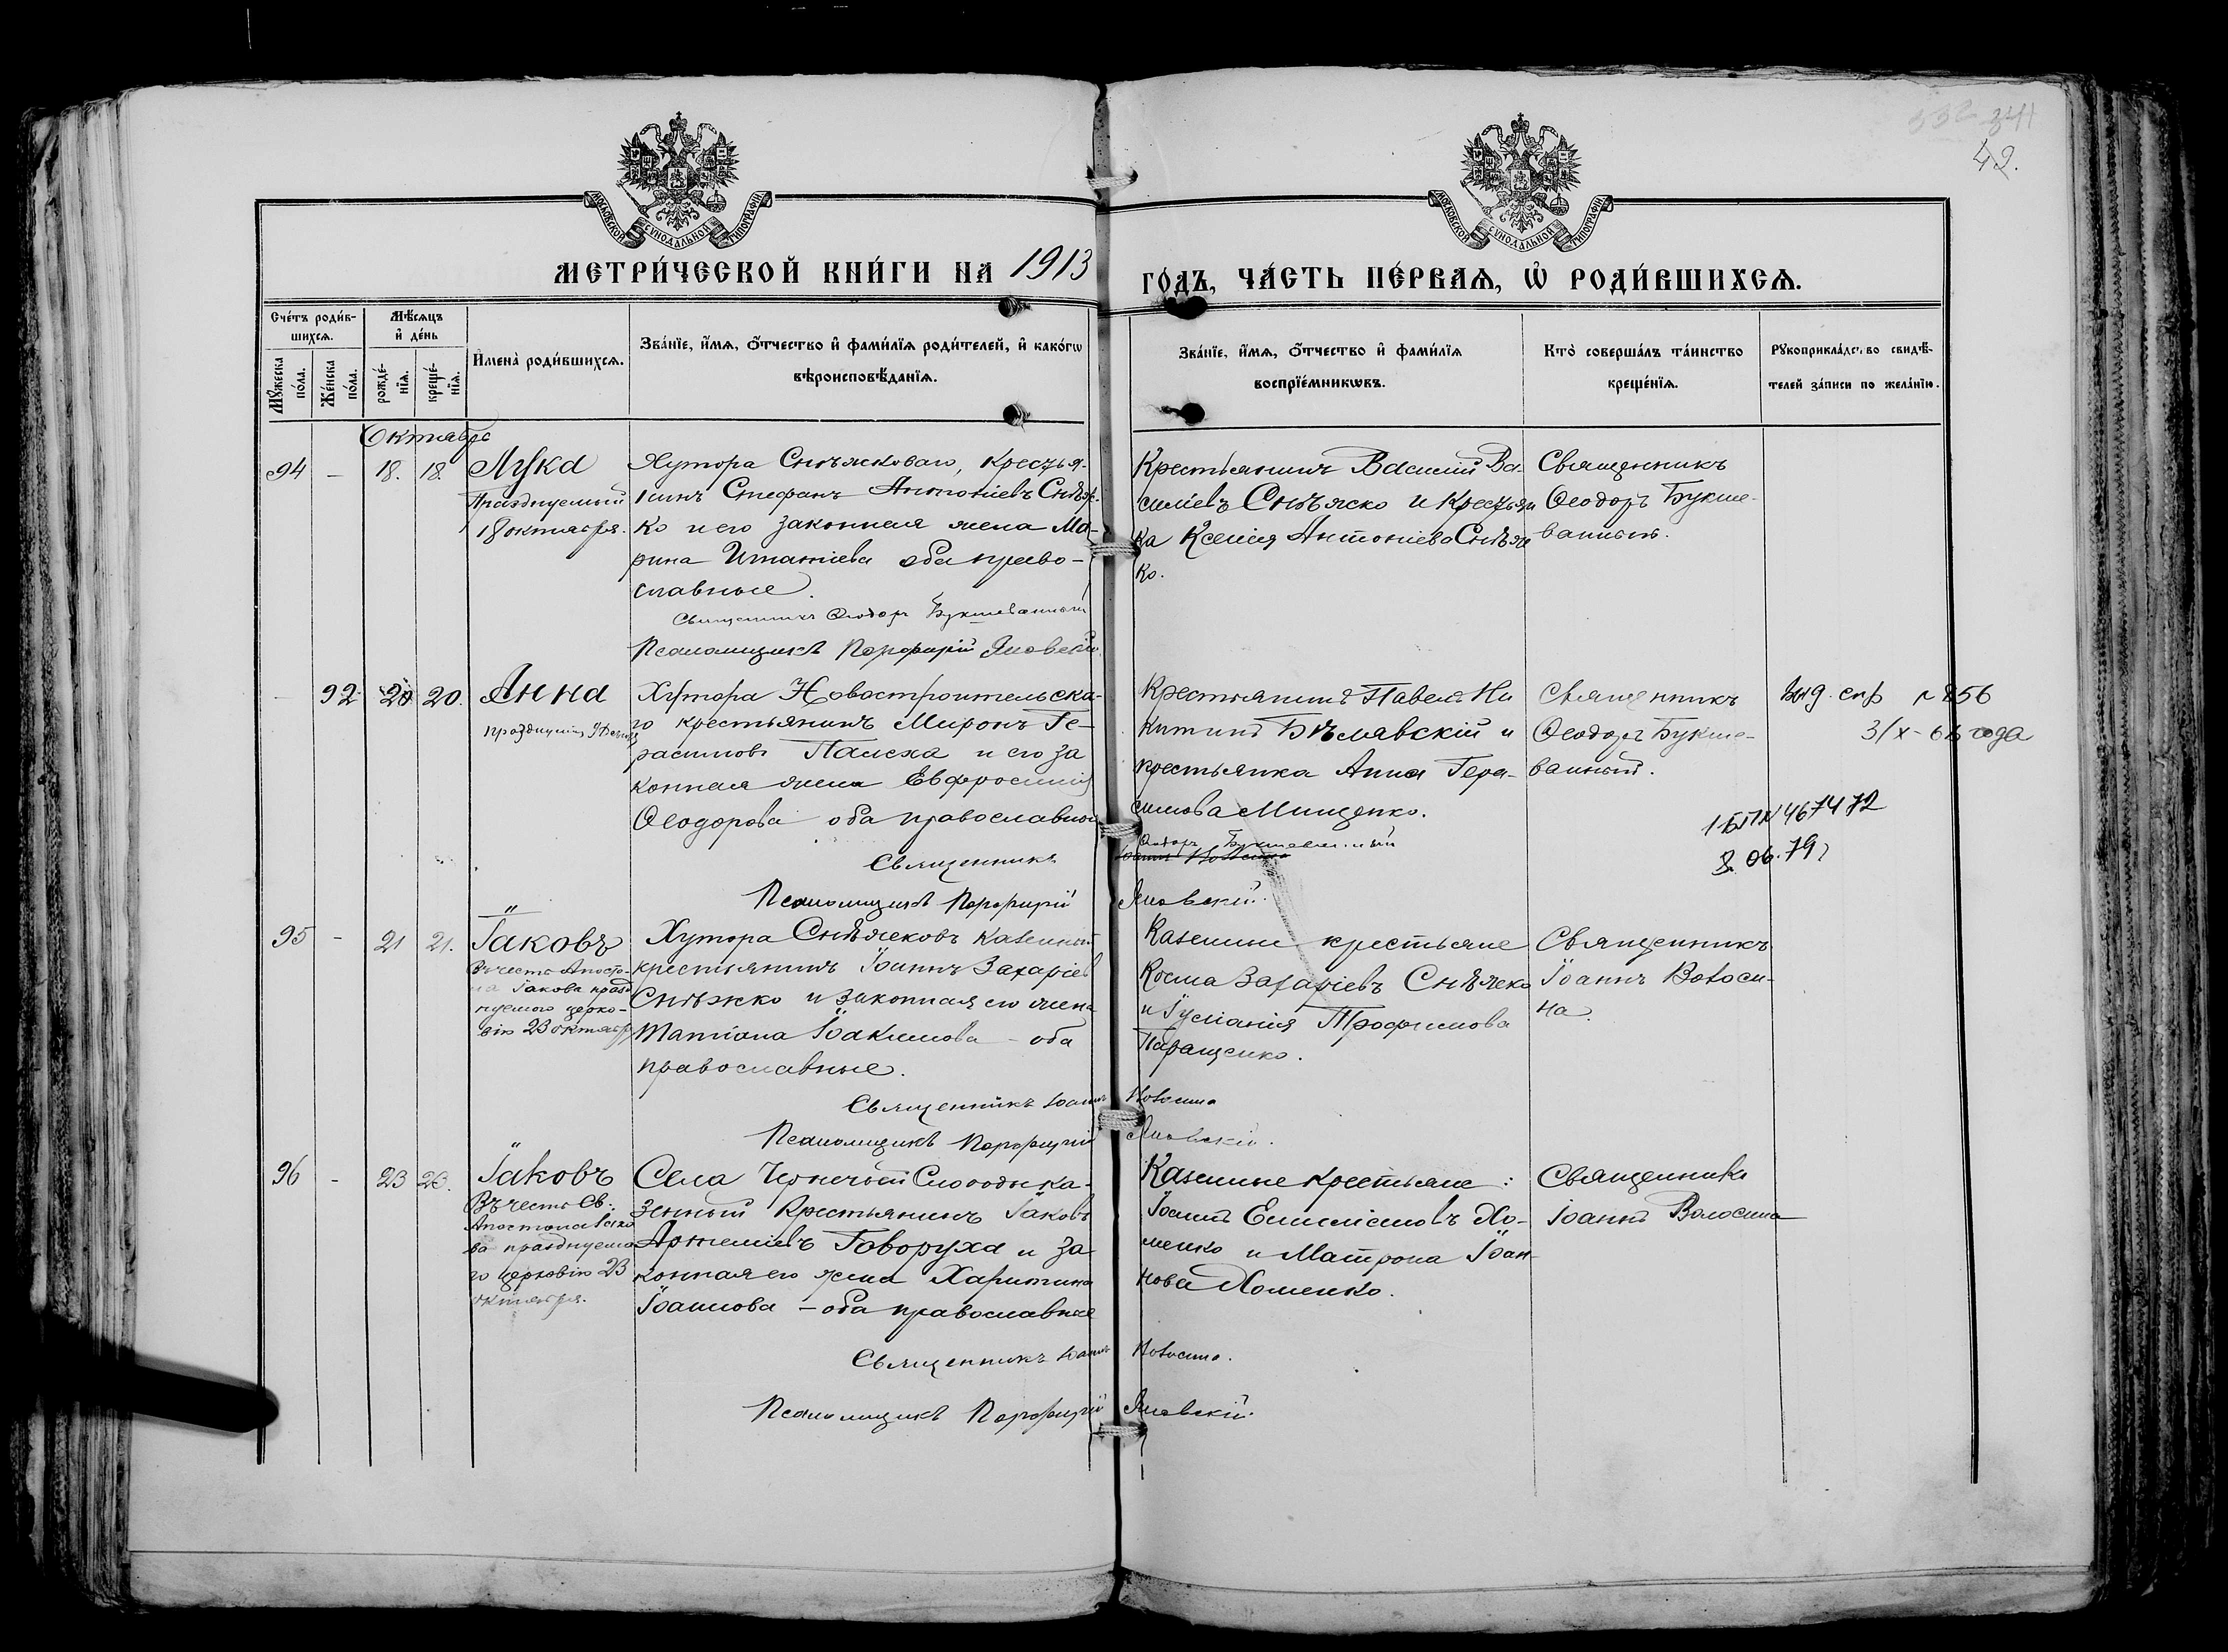 341
42.
МОСКОВСКОЙ СУНОДАЛЬНОЙ ТИПОГРАФІИ
МОСКОВСКОЙ СУНОДАЛЬНОЙ ТИПОГРАФІИ
МЕТРИ́ЧЕСКОЙ КНИ́ГИ НА 1913 ГО́ДЪ, ЧА́СТЬ ПЕ́РВАѦ, Ѡ҆ РОДИ́ВШИХСѦ.
Сче́тъ роди́в-
шихсѧ.
Мꙋ́жеска по́ла.
Же́нска по́ла.
Мѣ́сѧцъ и҆ де́нь
рожде́-нїѧ.
креще́-нїѧ.
И҆мена̀ роди́вшихсѧ.
Зва́нїе, и҆́мѧ, ѻ҆́тчество и҆ фами́лїѧ роди́телей, и҆ како́гѡ
вѣроисповѣ́данїѧ.
Зва́нїе, и҆́мѧ, ѻ҆́тчество и҆ фами́лїѧ
воспрїе́мникѡвъ.
Кто̀ соверша́лъ та́инство
креще́нїѧ.
Рꙋкоприкла́дство свидѣ́-
телей за́писи по жела́нїю.
Октябрь
94 - 18. 18.
Лука
Празднуемый
18 октября.
Хутора Снѣжкова, крестья-
нинъ Стефанъ Антоніевъ Снѣж-
ко и его законная жена Ма-
рина Игнатіева оба право-
славные.
Священникъ Ѳеодоръ Букшеванный
Псаломщикъ Порфирій Яновскій
Крестьянинъ Василій Ва-
силіевъ Снѣжко и крестьян
ка Ксенія Антоніева Снѣж
ко.
Священникъ
Ѳеодоръ Букше-
ванный.
- 92 20 20.
Анна
Хутора Новостроительска-
го крестьянинъ Миронъ Ге-
расимовъ и его за
конная жена Евфросинія
Ѳеодорова оба православные
Священникъ
Псаломщикъ Порфирій
Крестьянинъ Павелъ Ни
китинъ Бѣлявскій и
крестьянка Анна Гера-
симова Мищенко.
Ѳеодоръ Букшеванный
Яновскій.
Священникъ
Ѳеодоръ Букше-
ванный.
выд. спр №256
года
467472
06.79
95 - 21 21.
Іаковъ
Въ честь Апосто-
ла Іакова празд
нуемого церко-
вію 23 октября
Хутора Снѣжковъ казенный
крестьянинъ Іоаннъ Захаріев
Снѣжко и законная его жена
Татіана Іоакимова - оба
православные.
Священникъ Іоаннъ Волосина
Псаломщикъ Порфирій Яновскій.
Казенные крестьяне
Косма Захаріевъ Снѣжко
и Іуліанія Трофимова
Паращенко.
Священникъ
Іоаннъ Волоси-
на.
96 - 23 23.
Іаковъ
Въ честь Св.
Апостола Іако
ва празднуемо
го церковію 23
октября.
Села Чернечей Слободы ка-
зенный крестьянинъ Іаковъ
Артеміевъ Говоруха и за-
конная его жена Харитина
Іоаннова - оба православные
Священникъ Іоаннъ Волосина.
Псаломщикъ Порфирій Яновскій.
Казенные крестьяне:
Іоаннъ Емиліановъ Хо-
менко и Матрона Іоан-
нова Хоменко.
Священникъ
Іоаннъ Волосина